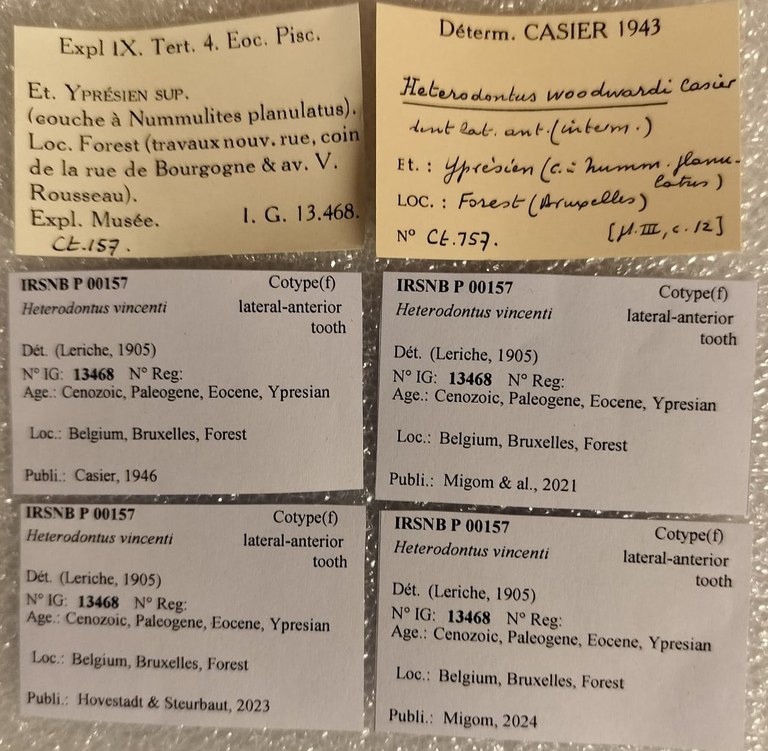 Expl IX. Tert. 4. Eoc. Pisc.
Et. YPRÉSIEN SUP.
(couche à Nummulites planulatus).
Loc. Forest (travaux nouv. rue, coin
de la rue de Bourgogne & av. V.
Rousseau).
Expl. Musée. I. G. 13.468.
Ct.157.
Déterm. CASIER 1943
Heterodontus woodwardi Casier
dent lat. ant. (interm.)
Et. : Yprésien (c. à numm. planu-
latus)
LOC. : Forest (Bruxelles)
N° Ct.757. [pl. III, c. 12]
IRSNB P 00157 Cotype(f)
Heterodontus vincenti lateral-anterior
tooth
Dét. (Leriche, 1905)
N° IG: 13468 N° Reg:
Age.: Cenozoic, Paleogene, Eocene, Ypresian
Loc.: Belgium, Bruxelles, Forest
Publi.: Casier, 1946
IRSNB P 00157 Cotype(f)
Heterodontus vincenti lateral-anterior
tooth
Dét. (Leriche, 1905)
N° IG: 13468 N° Reg:
Age.: Cenozoic, Paleogene, Eocene, Ypresian
Loc.: Belgium, Bruxelles, Forest
Publi.: Migom & al., 2021
IRSNB P 00157 Cotype(f)
Heterodontus vincenti lateral-anterior
tooth
Dét. (Leriche, 1905)
N° IG: 13468 N° Reg:
Age.: Cenozoic, Paleogene, Eocene, Ypresian
Loc.: Belgium, Bruxelles, Forest
Publi.: Hovestadt & Steurbaut, 2023
IRSNB P 00157 Cotype(f)
Heterodontus vincenti lateral-anterior
tooth
Dét. (Leriche, 1905)
N° IG: 13468 N° Reg:
Age.: Cenozoic, Paleogene, Eocene, Ypresian
Loc.: Belgium, Bruxelles, Forest
Publi.: Migom, 2024